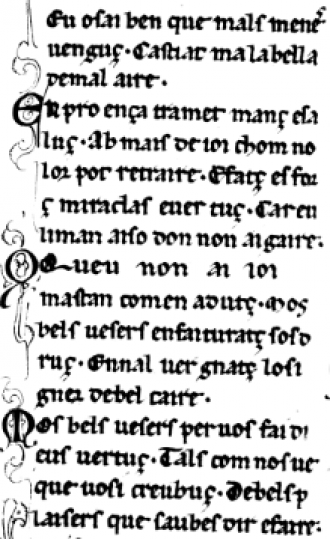 Eu osai ben que mals mene
uenguç · Castiat ma labella
demal aire ·
En pro ença tramet manç esa
luç · Ab mais de ioi chom no
lor pot retraire · Efatç esfor
ç miraclas euer tuç · Car eu
liman aiso don non aigaire ·
Qeu non ai ioi
mastan comen adutç · Mos
bels uesers enfaituratç sos d
ruç · Ennal uer gnatç losi
gner debel caire ·
Mos bels uesers per uos fai di
eus uertuç · Tals com nos ue
que uosi creubuç · Debels p
laisers que saubes dir efaire ·